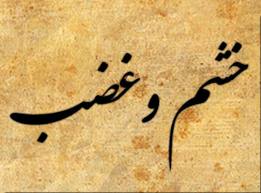 خشم و غضب